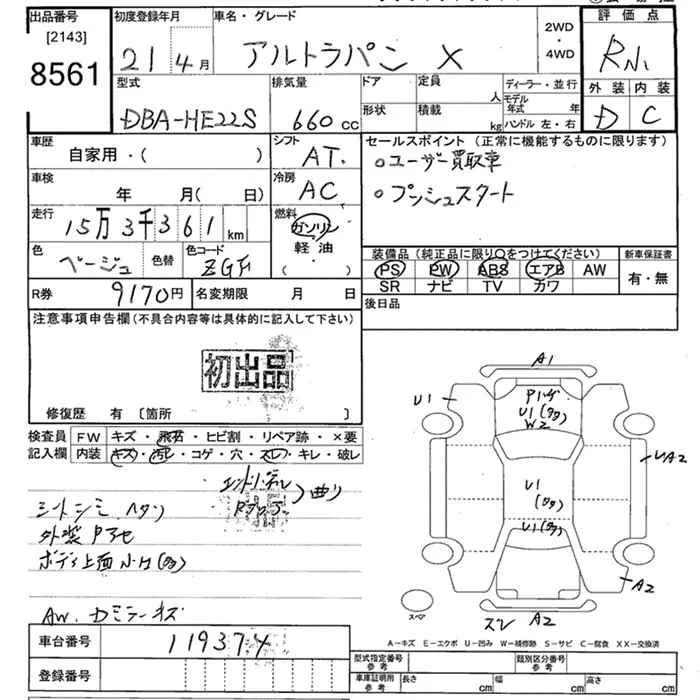 出品番号
[2143]
8561
初度登録年月
21年4月
車名・グレード
アルトラパン X
2WD
・
4WD
評価点
外装 内装
D C
型式
DBA-HE22S
排気量
660 cc
ドア
形状
定員
人
積載
kg
ディーラー・並行
モデル年式 年
ハンドル 左・右
車歴
自家用・( )
シフト
AT.
セールスポイント (正常に機能するものに限ります)
○ユーザー買取車
○プッシュスタート
車検
年 月(日)
冷房
AC
走行
15万3千361 km
燃料
ガソリン
軽油
( )
色
ベージュ
色替
色コード
装備品(純正品に限り○をつけてください)
PS PW ABS エアB AW
SR ナビ TV カワ
新車保証書
有・無
R券
9170円
名変期限 月 日
後日品
注意事項申告欄(不具合内容等は具体的に記入して下さい)
初出品
修復歴 有 〔箇所 〕
検査員
記入欄
FW キズ・飛石・ヒビ割・リペア跡・×要
内装 キズ・汚レ・コゲ・穴・スレ・キレ・破レ
シートシミ ヘタリ
ボディ上面小H(多)
AW. Dミラーキズ
車台番号
119374
登録番号
A1
U1
U1(多)
W2
U1
(多)
U1(多)
A2
A2
スレ
スペア
A-キズ E-エクボ U-凹み W-補修跡 S-サビ C-腐食 XX-交換済
型式指定番号
参考
類別区分番号
参考
車庫証明用
参考
長さ cm
幅 cm
高さ cm